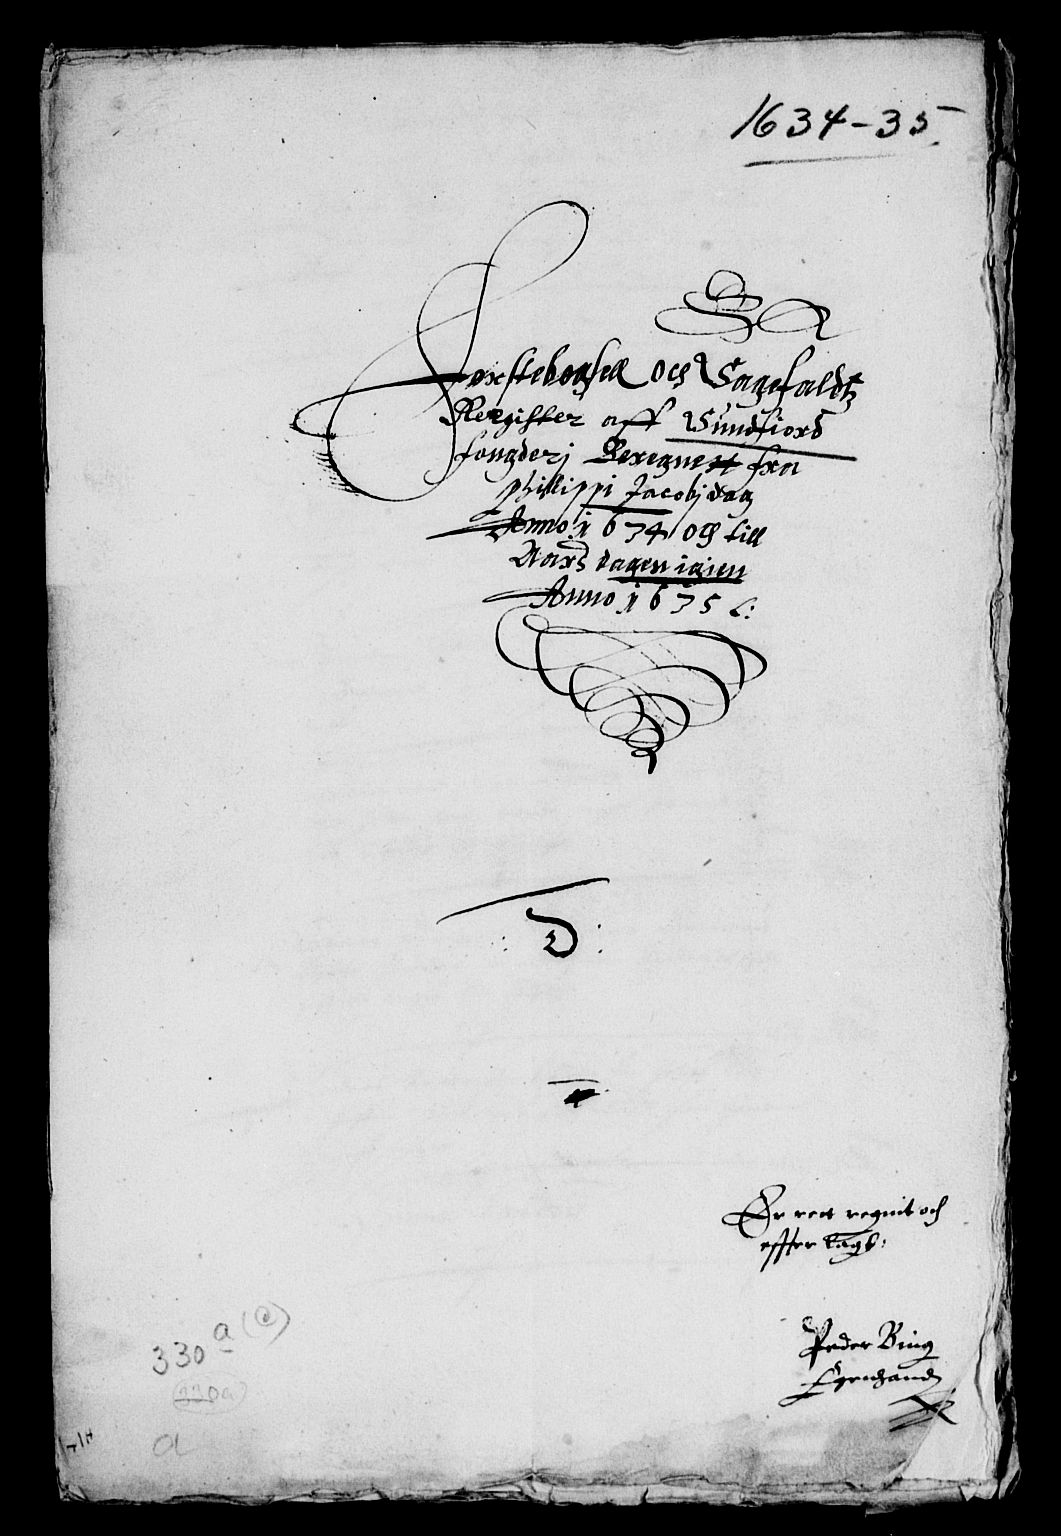 1634-35.
Førstebogsell och Sagefaldtz
Register aff Sundfiord
fougderj Beregnett fra
Philippi Jacobj dag
Anno 1634 och till
Aars dagen igien
Anno 1635
D:
Er rett regnit och
effter
Peder Bing
Egenhand
330 a (a)
(330a)
a